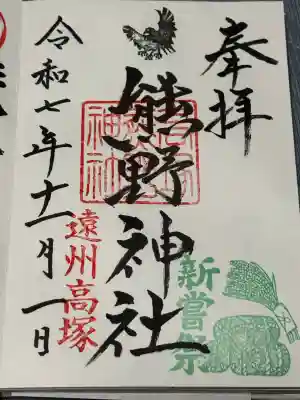 奉拝
熊野神社
新嘗祭
遠州高塚
令和七年十一月一日